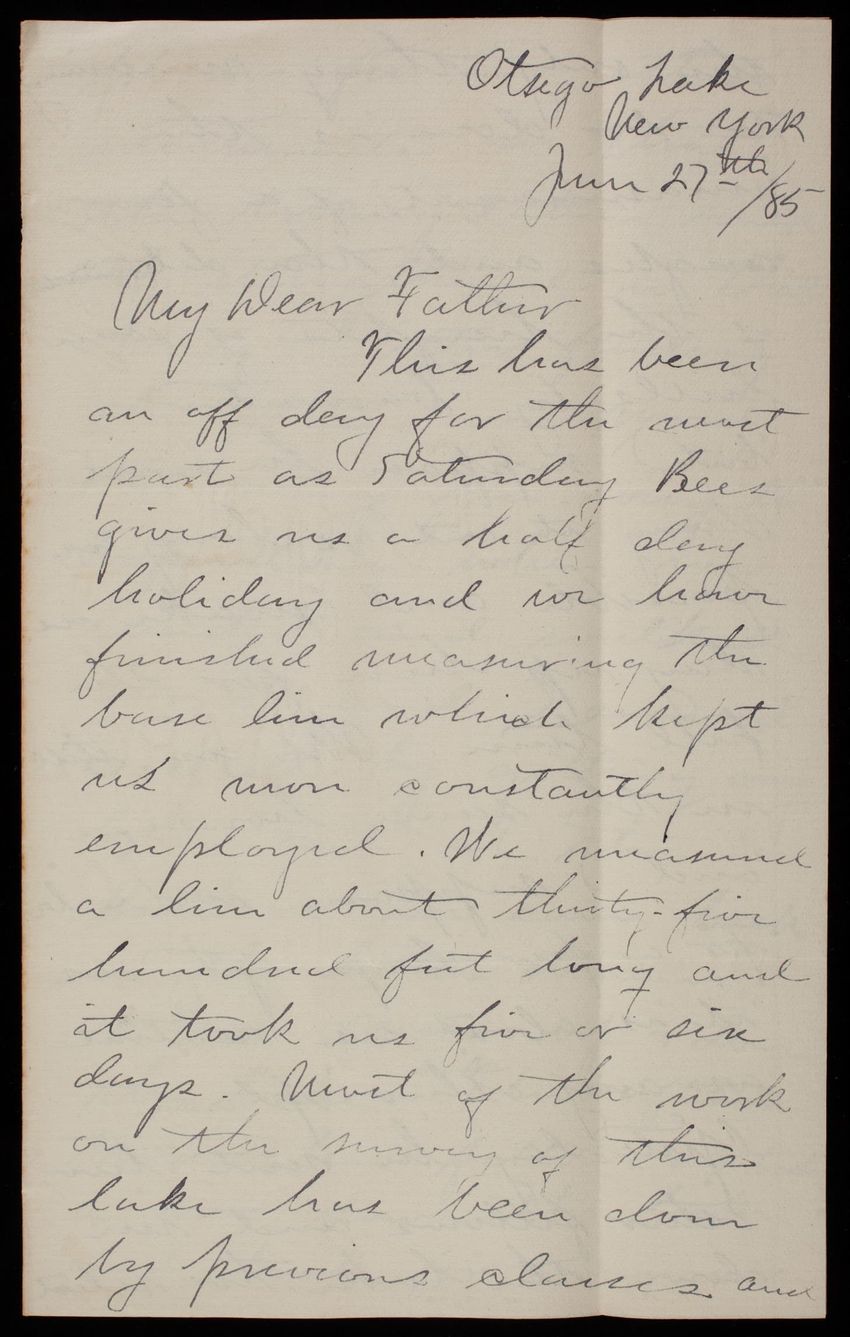 Otsego Lake
New York
June 27th/85
My Dear Father
This has been
an off day for the most
part as Saturday Bees
gives us a half day
holiday and we have
finished measuring the
base line which kept
us more constantly
employed. We measured
a line about thirty-five
hundred feet long and
it took us five or six
days. Most of the work
on the survey of this
lake has been done
by previous classes and